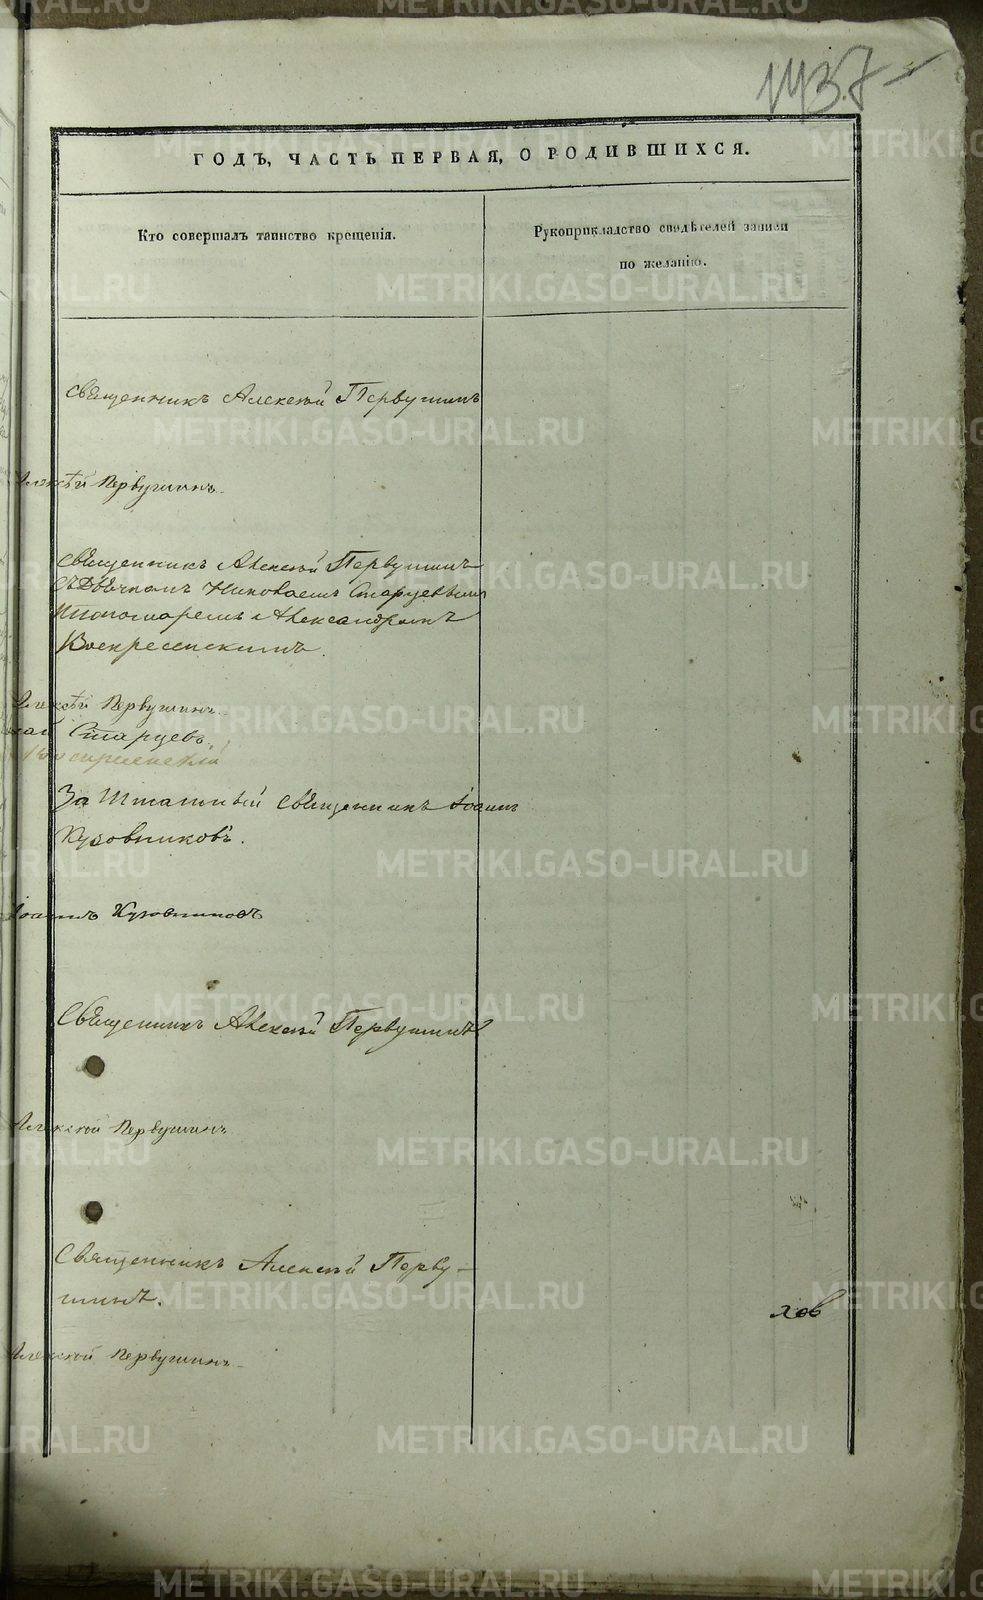 1437
ГОДЪ, ЧАСТЬ ПЕРВАЯ, О РОДИВШИХСЯ.
Кто совершалъ таинство крещенія.
Рукоприкладство свидѣтелей записи
по желанію.
Священникъ Алексѣй Первушинъ
Алексѣй Первушинъ.
Священникъ Алексѣй Первушинъ
съ Дьячкомъ Николаемъ Старцевымъ
Пономаремъ Александромъ
Воскресенскимъ.
Алексѣй Первушинъ.
Старцевъ.
За Штатный священникъ Іоаннъ
Кузовниковъ.
Іоаннъ Кузовниковъ
Священникъ Алексѣй Первушинъ
Алексѣй Первушинъ
Священникъ Алексѣй Перву-
шинъ.
ловъ
Алексѣй Первушинъ
METRIKI.GASO-URAL.RU